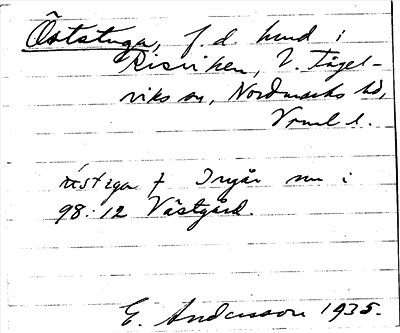 Öststuga, f. d. hmd i
Risviken, V. Fågel-
viks sn, Nordmarks hd,
Vrml l.
Ingår nu i
98:12 Västgård.
E. Andersson 1935.